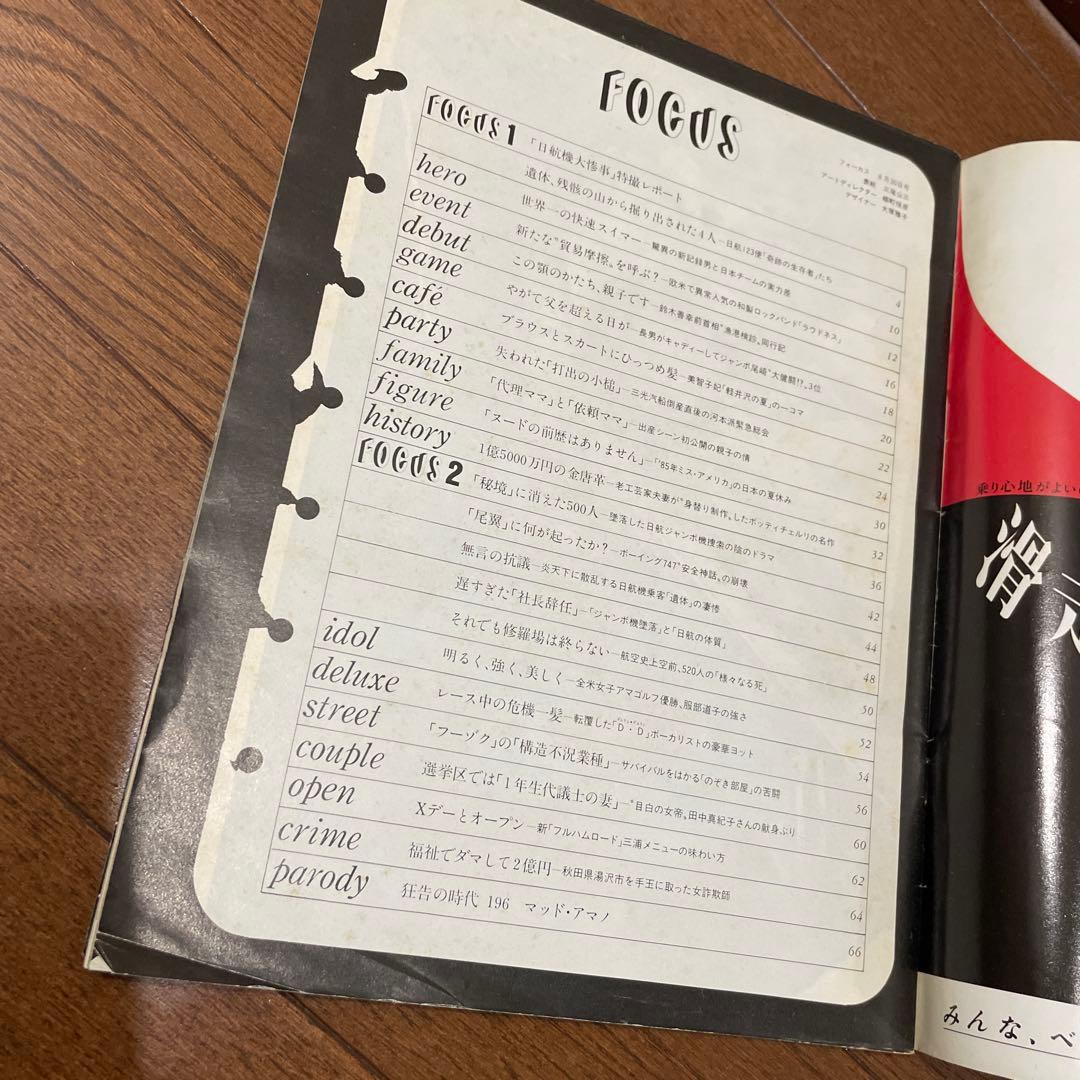 FOCUS
フォーカス 8月30日号
表紙 三尾公三
アートディレクター
デザイナー 大塚雅子
FOCUS 1 「日航機大惨事」特撮レポート
遺体、残骸の山から掘り出された4人—日航123便「奇跡の生存者」たち 4
hero 世界一の快速スイマー—驚異の新記録男と日本チームの実力差 10
event 新たな“貿易摩擦〟を呼ぶ?—欧米で異常人気の和製ロックバンド「ラウドネス」 12
debut この顎のかたち、親子です—鈴木善幸前首相“漁港検診〟同行記 16
game やがて父を超える日が—長男がキャディーしてジャンボ尾崎“大健闘!?〟3位 18
café ブラウスとスカートにひっつめ髪—美智子妃「軽井沢の夏」の一コマ 20
party 失われた「打出の小槌」—三光汽船倒産直後の河本派緊急総会 22
family 「代理ママ」と「依頼ママ」—出産シーン初公開の親子の情 24
figure 「ヌードの前歴はありません」—「'85年ミス・アメリカ」の日本の夏休み 30
history 1億5000万円の金唐革—老工芸家夫妻が“身替り制作〟したボッティチェルリの名作 32
FOCUS 2 「秘境」に消えた500人—墜落した日航ジャンボ機捜索の陰のドラマ 36
「尾翼」に何が起ったか?—ボーイング747“安全神話〟の崩壊 42
無言の抗議—炎天下に散乱する日航機乗客「遺体」の凄惨 44
遅すぎた「社長辞任」—「ジャンボ機墜落」と「日航の体質」 48
それでも修羅場は終らない—航空史上空前、520人の「様々なる死」 50
idol 明るく、強く、美しく—全米女子アマゴルフ優勝、服部道子の強さ 52
deluxe レース中の危機一髪—転覆した「D・D」ボーカリストの豪華ヨット 54
street 「フーゾク」の「構造不況業種」—サバイバルをはかる「のぞき部屋」の苦闘 56
couple 選挙区では「1年生代議士の妻」—“目白の女帝〟田中真紀子さんの献身ぶり 60
open Xデーとオープン—新「フルハムロード」三浦メニューの味わい方 62
crime 福祉でダマして2億円—秋田県湯沢市を手玉に取った女詐欺師 64
parody 狂告の時代 196 マッド・アマノ 66
乗り心地がよい
滑
みんな、ベ